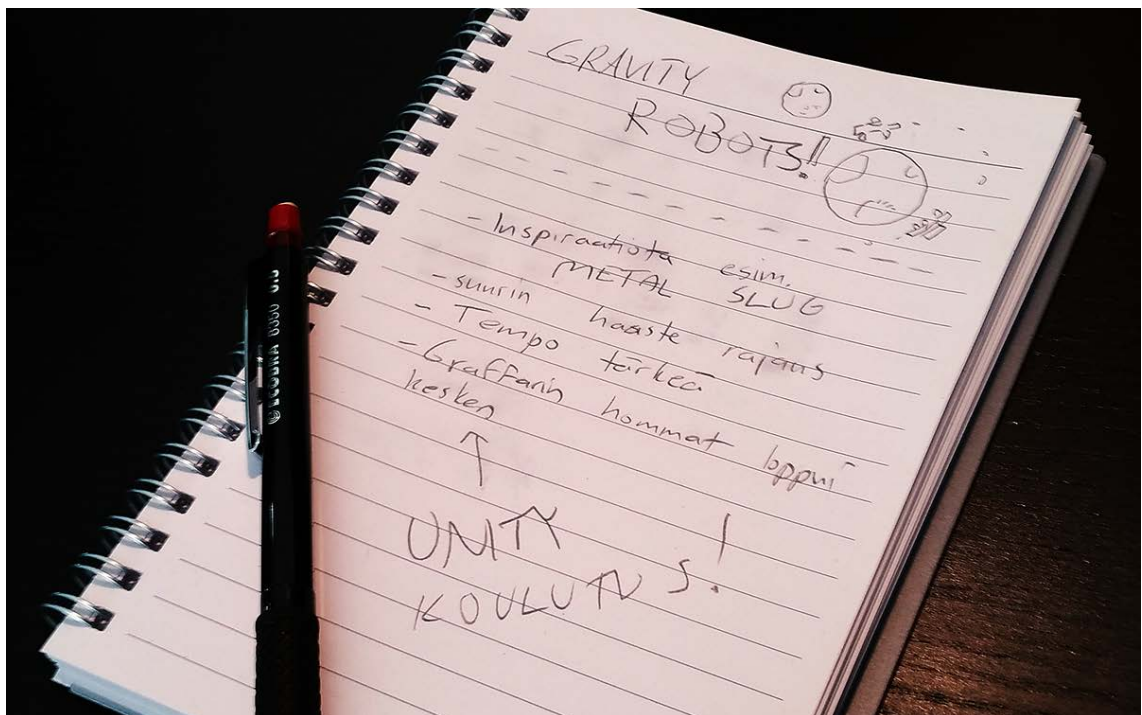 GRAVITY
ROBOTS!!
- Inspiraatiota esim.
METAL SLUG
- suurin haaste rajaus
- Tempo tärkeä
- Graffarin hommat loppui
kesken
UNITY
KOULUTUS!